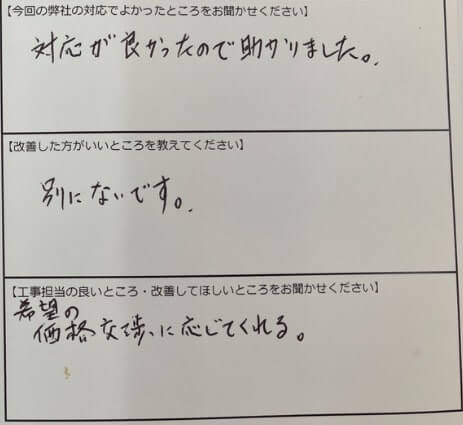 【今回の弊社の対応でよかったところをお聞かせください】
対応が良かったので助かりました。
【改善した方がいいところを教えてください】
別にないです。
【工事担当の良いところ・改善してほしいところをお聞かせください】
希望の
価格交渉に応じてくれる。